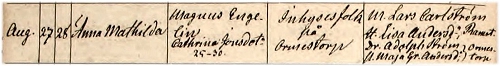 Aug. 27 28 Anna Mathilda
Magnus Enge-
lin
Cathrina Jonsdotr
25-30.
Inhysesfolk
frå
Ormestorp
M. Lars Carlström
H. Lisa Andersd.
Dr. Adolph Ström
P. Maja Gr. Andersd.
Ormes-
torp